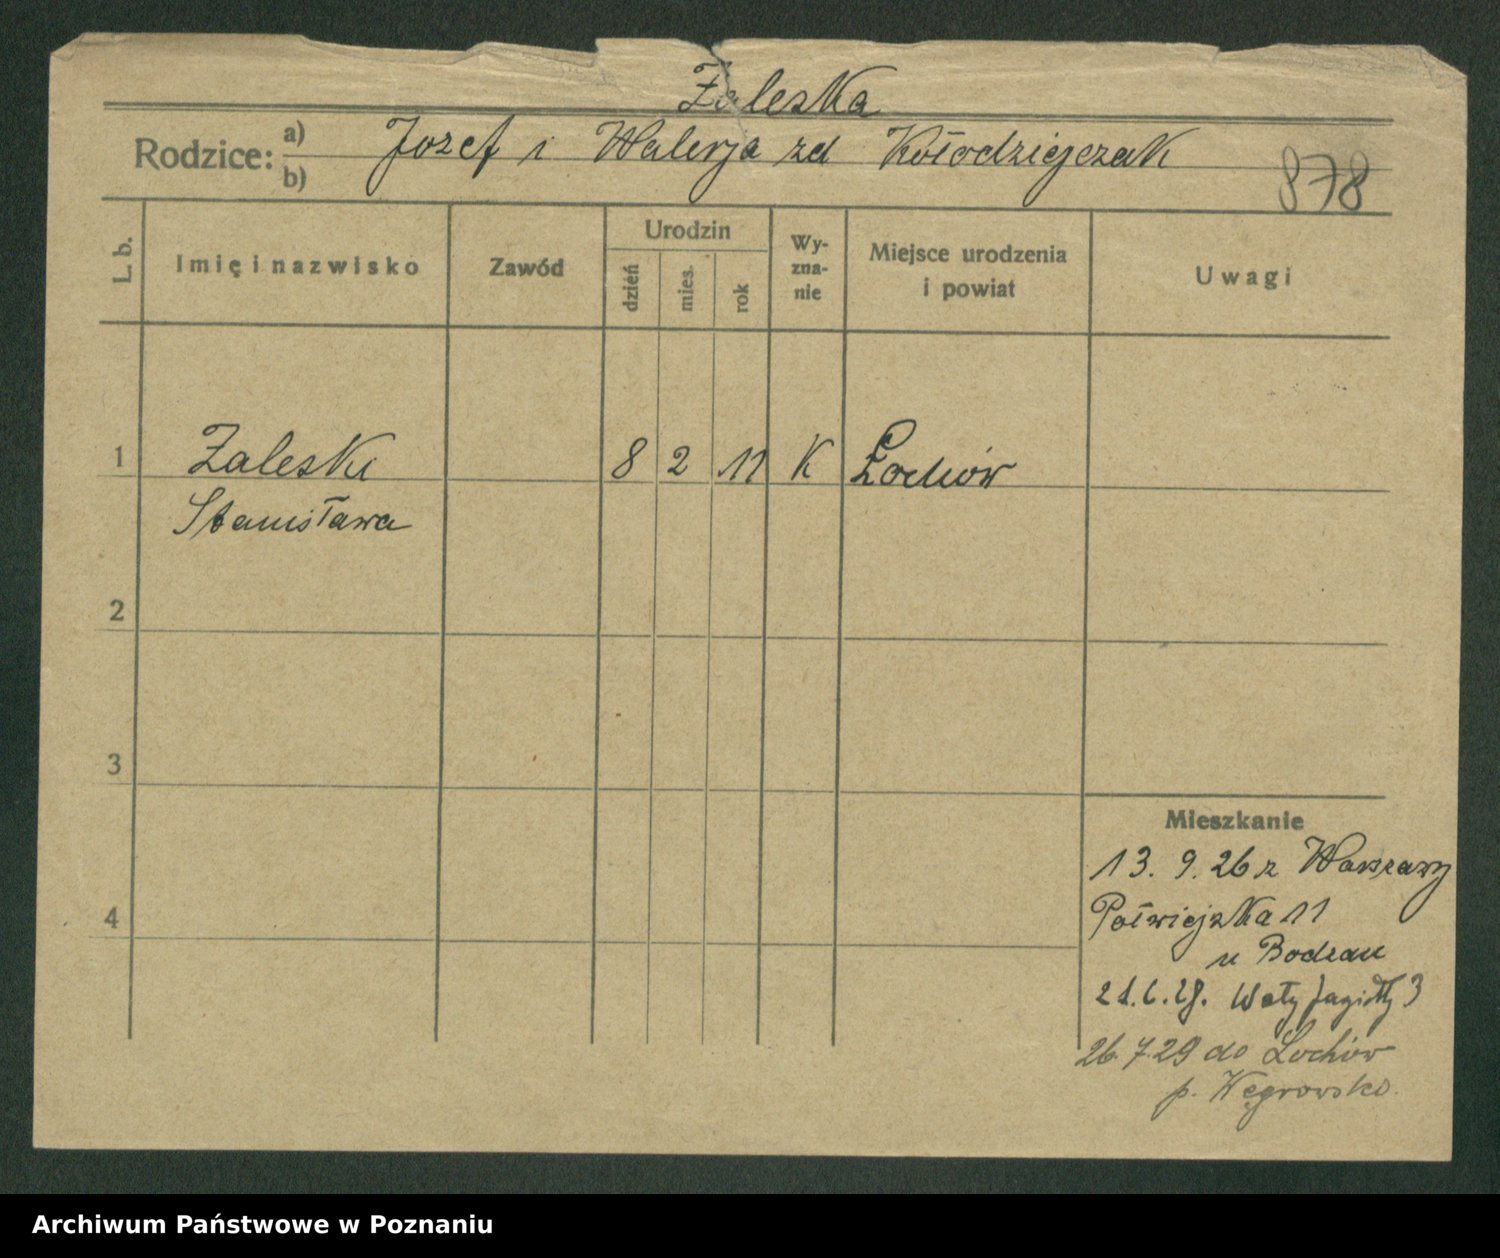 Zaleska
Rodzice: a) b) Jozef i Walerja zd Kołodziejczak
878
L. b.
Imię i nazwisko
Zawód
Urodzin
dzień
mies.
rok
Wy-
zna-
nie
Miejsce urodzenia
i powiat
Uwagi
1 Zaleski 8 2 11 K Łochów
Stanisława
2
3
Mieszkanie
13. 9. 26 z Warszawy
4 Półwiejska 11
u Bodzan
21.6.28. Wały Jagiełły 3
26.7.29 do Łochów
p. Węgrowsko.